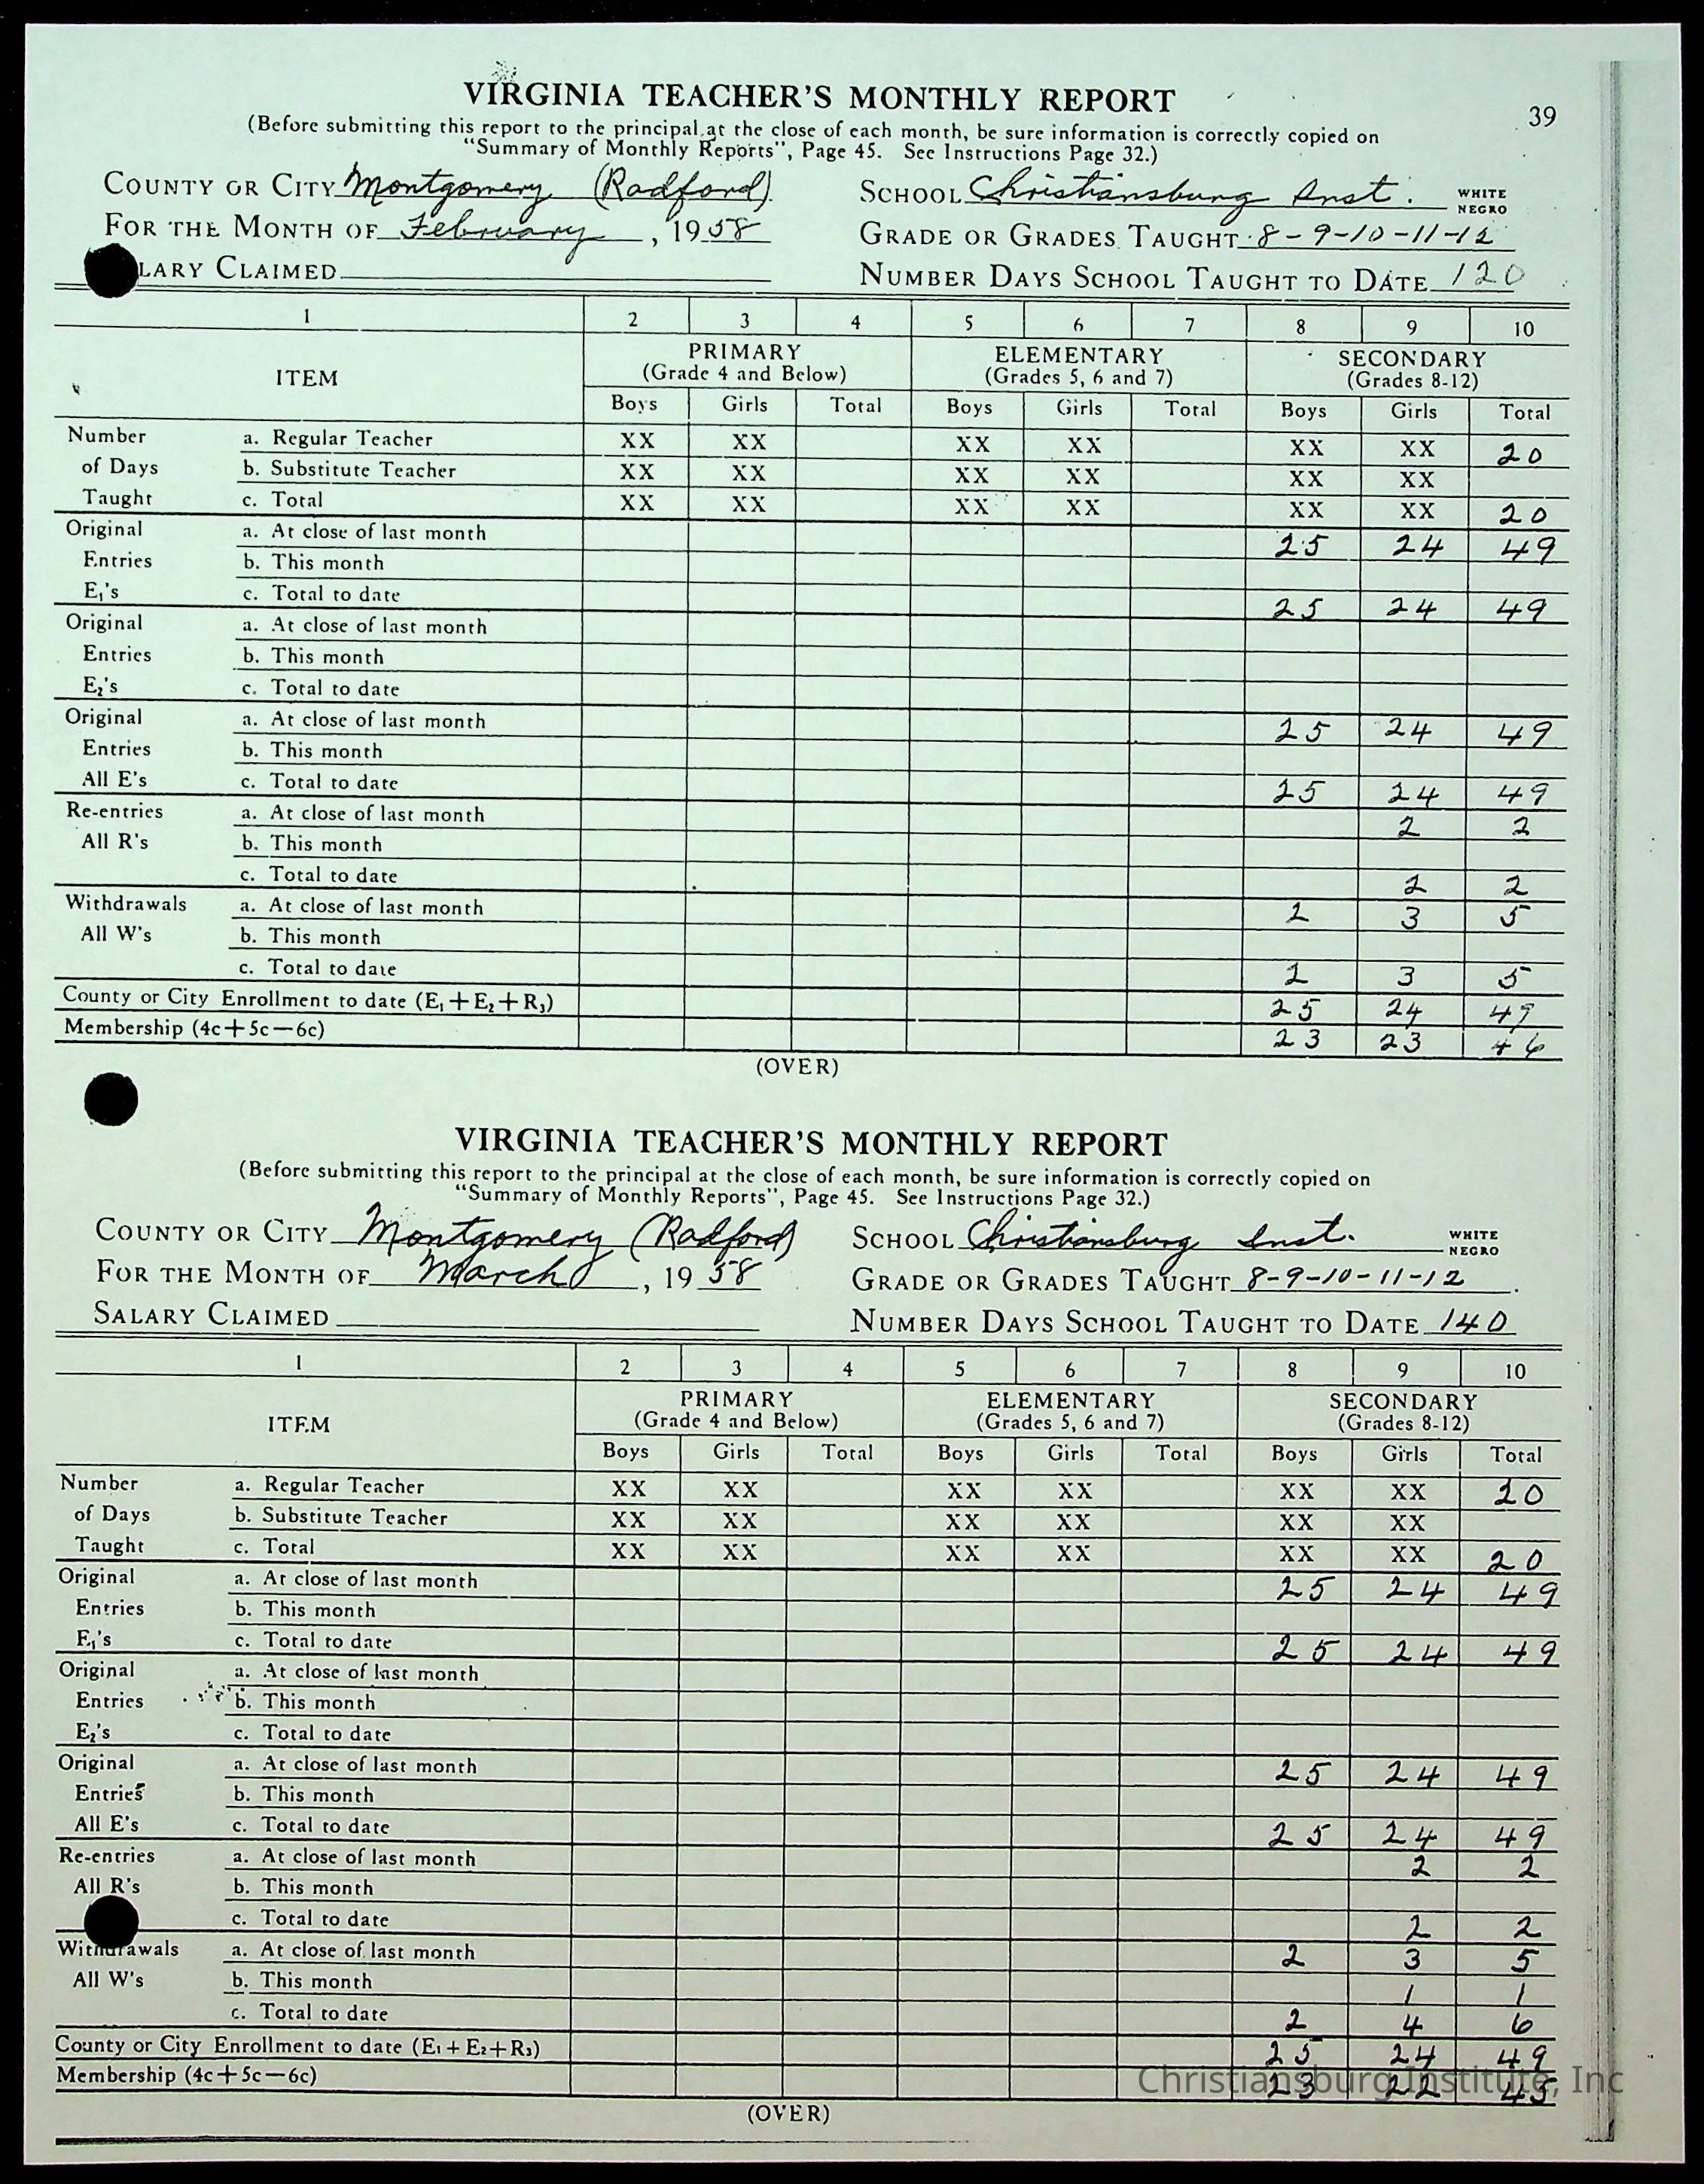 VIRGINIA TEACHER'S MONTHLY REPORT
39
(Before submitting this report to the principal at the close of each month, be sure information is correctly copied on
"Summary of Monthly Reports", Page 45. See Instructions Page 32.)
COUNTY OR CITY Montgomery (Radford) SCHOOL Christiansburg Inst. WHITE NEGRO
FOR THE MONTH OF February, 1958 GRADE OR GRADES TAUGHT 8-9-10-11-12
LARY CLAIMED NUMBER DAYS SCHOOL TAUGHT TO DATE 120
1 2 3 4 5 6 7 8 9 10
ITEM PRIMARY (Grade 4 and Below) ELEMENTARY (Grades 5, 6 and 7) SECONDARY (Grades 8-12)
Boys Girls Total Boys Girls Total Boys Girls Total
Number a. Regular Teacher XX XX XX XX XX XX 20
of Days b. Substitute Teacher XX XX XX XX XX XX
Taught c. Total XX XX XX XX XX XX 20
Original a. At close of last month 25 24 49
Entries b. This month
E₁'s c. Total to date 25 24 49
Original a. At close of last month
Entries b. This month
E₂'s c. Total to date
Original a. At close of last month 25 24 49
Entries b. This month
All E's c. Total to date 25 24 49
Re-entries a. At close of last month 2 2
All R's b. This month
c. Total to date 2 2
Withdrawals a. At close of last month 2 3 5
All W's b. This month
c. Total to date 2 3 5
County or City Enrollment to date (E₁+E₂+R₃) 25 24 49
Membership (4c+5c—6c) 23 23 46
(OVER)
VIRGINIA TEACHER'S MONTHLY REPORT
(Before submitting this report to the principal at the close of each month, be sure information is correctly copied on
"Summary of Monthly Reports", Page 45. See Instructions Page 32.)
COUNTY OR CITY Montgomery (Radford) SCHOOL Christiansburg Inst. WHITE NEGRO
FOR THE MONTH OF March, 1958 GRADE OR GRADES TAUGHT 8-9-10-11-12
SALARY CLAIMED NUMBER DAYS SCHOOL TAUGHT TO DATE 140
1 2 3 4 5 6 7 8 9 10
ITEM PRIMARY (Grade 4 and Below) ELEMENTARY (Grades 5, 6 and 7) SECONDARY (Grades 8-12)
Boys Girls Total Boys Girls Total Boys Girls Total
Number a. Regular Teacher XX XX XX XX XX XX 20
of Days b. Substitute Teacher XX XX XX XX XX XX
Taught c. Total XX XX XX XX XX XX 20
Original a. At close of last month 25 24 49
Entries b. This month
E₁'s c. Total to date 25 24 49
Original a. At close of last month
Entries b. This month
E₂'s c. Total to date
Original a. At close of last month 25 24 49
Entries b. This month
All E's c. Total to date 25 24 49
Re-entries a. At close of last month 2 2
All R's b. This month
c. Total to date 2 2
Withdrawals a. At close of last month 2 3 5
All W's b. This month 1 1
c. Total to date 2 4 6
County or City Enrollment to date (E₁+E₂+R₃) 25 24 49
Membership (4c+5c—6c) 23 22 45
Christiansburg Institute, Inc
(OVER)